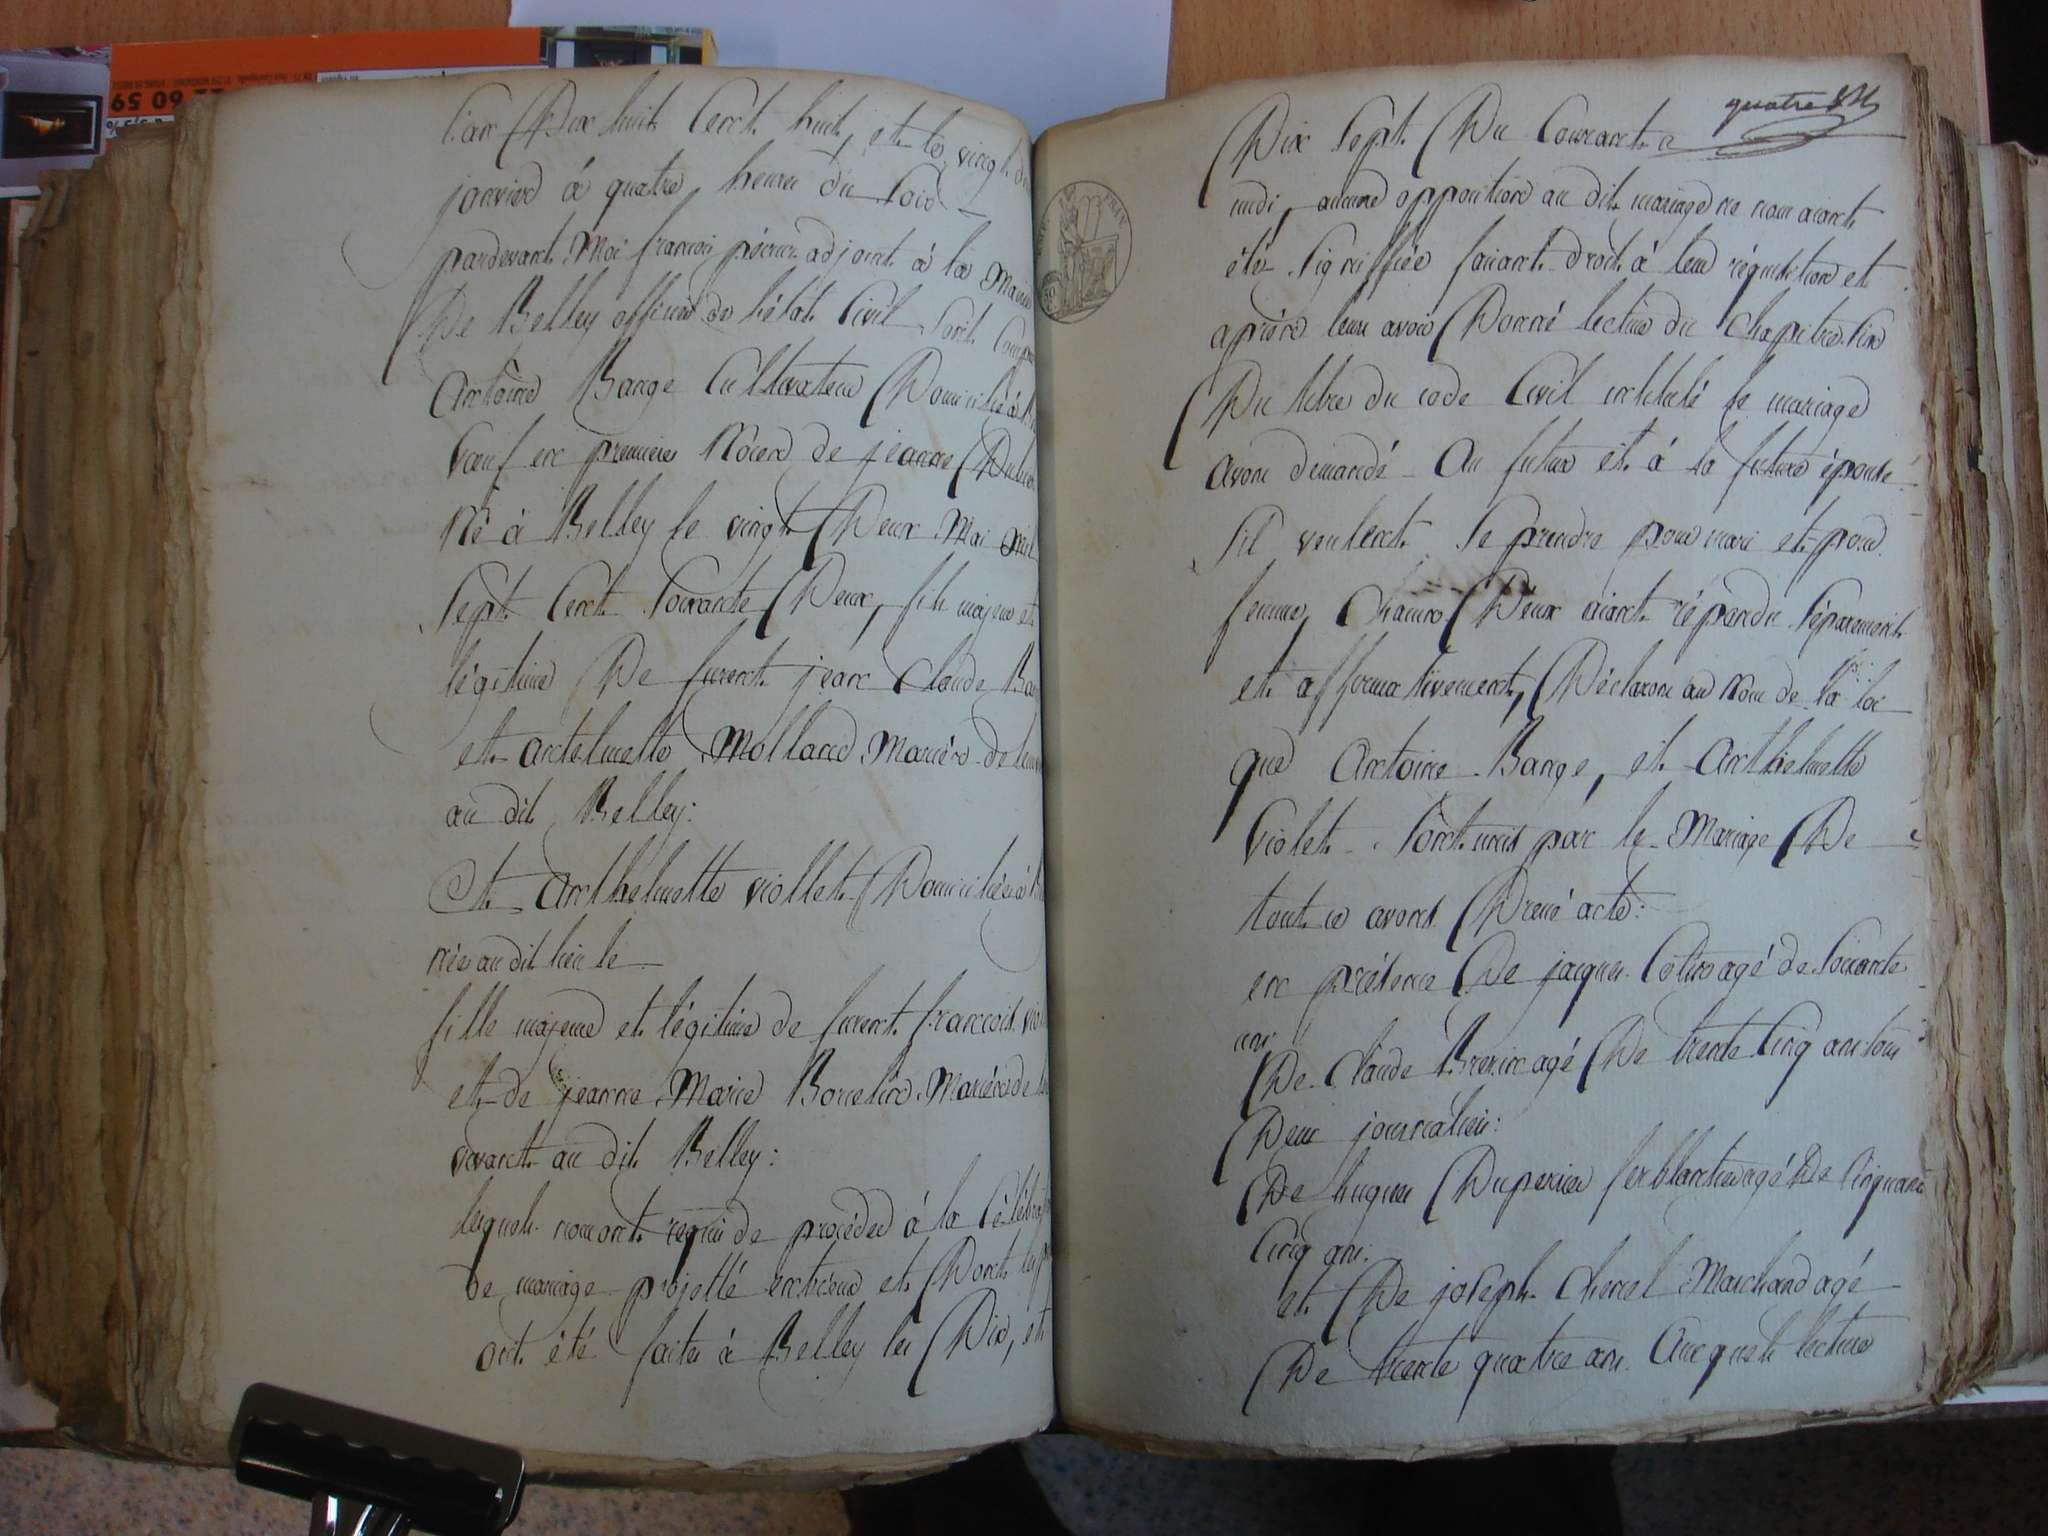 22 60 59
l'an Dix huit Cent huit, et le vingt
janvier à quatre heures du Soir
pardevant Moi françois adjoint à la
De Belley officier de l'état Civil Sont
Antoine Bange Cultivateur Domicilié à
Vœuf en premieres Nôces de jeanne
Né à Belley le vingt Deux Mai Mil
Sept Cent Soixante Deux, fils majeur et
légitime De furent jean Claude
et antelmette Molland Mariés
au dit Belley:
Et Anthelmette viollet Domiciliée à
née au dit lieu le
fille majeure et légitime de furent françois
et de jeanne Marie Mariés de
vivant au dit Belley:
lesquels nous ont requis de procéder à la
de mariage projetté entr'eux et Dont
ont été faites à Belley les Dix, et
quatre
Dix Sept Du Courant
midi, aucune opposition au dit mariage ne nous aiant
été Signiffiée faisant droit à leur réquisition et
aprèes leur avoir Donné lecture du Chapitre Six
Du titre du code Civil intitulé le mariage
avons demandé Au futur et à la future épouse
S'il veulent Se prendre pour mari et pour
femme, Chacun D'eux aiant répondu Séparement
et affirmativement, Déclarons au Nom de la loi
que Antoine Bange, et Anthelmette
Violet Sont unis par le Mariage De
tout ce avons Dressé acte:
en présence De jacques agé de Soixante
ans
De Claude agé De trente Cinq ans tous
Deux journaliers:
De hugues Duperrier ferblantier agé De Cinquante
Cinq ans:
et De joseph Marchand agé
De trente quatre ans. Auxquels lecture